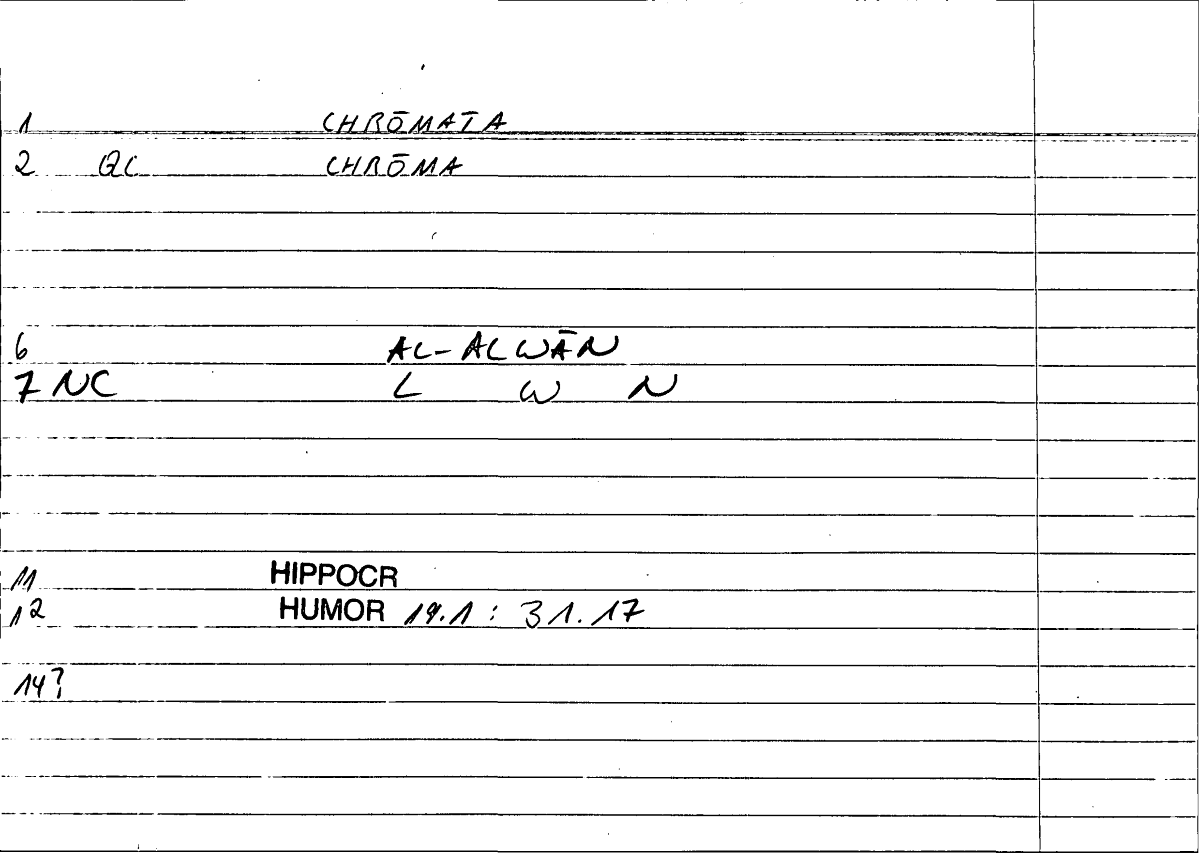 1 CHRŌMATA
2 QC CHRŌMA
6 AL-ALWĀN
7 NC L W N
11 HIPPOCR
12 HUMOR 19.1 : 31.17
14?